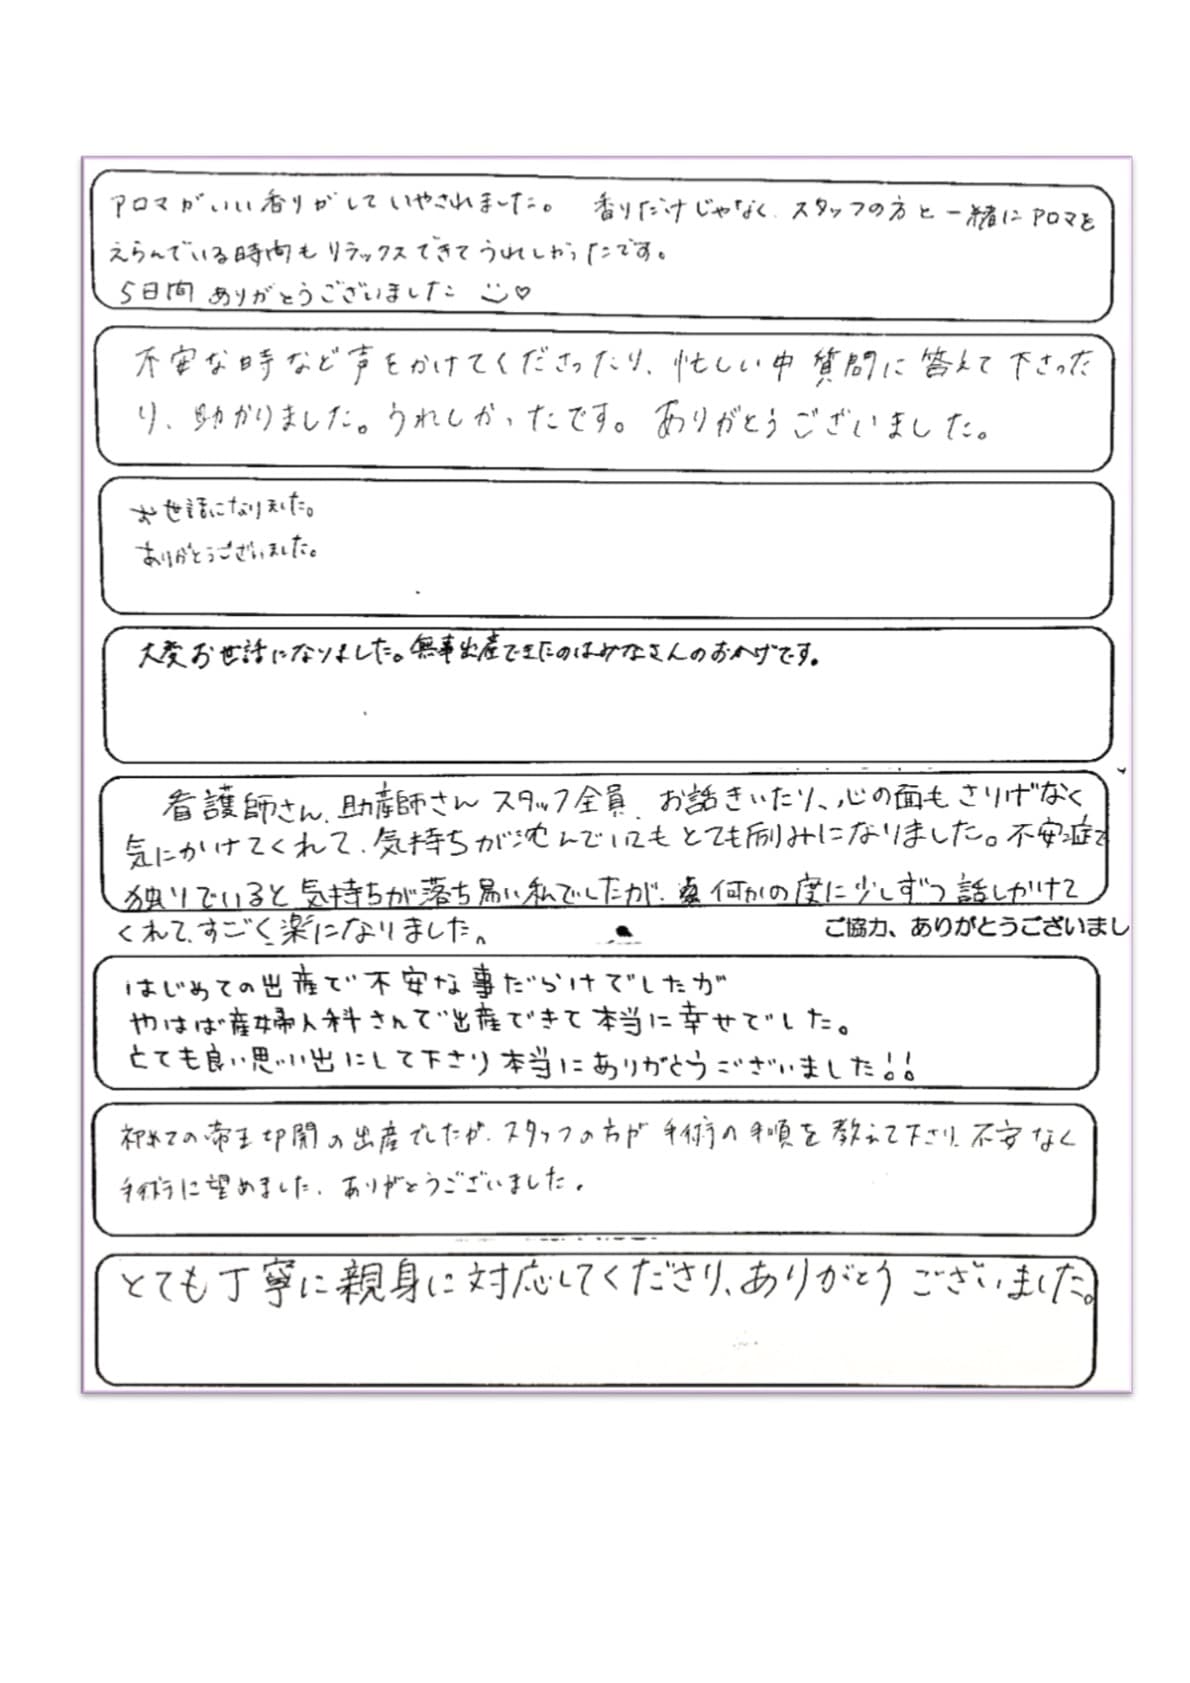 アロマがいい香りがしていやされました。 香りだけじゃなく、スタッフの方と一緒にアロマを
えらんでいる時間もリラックスできてうれしかったです。
5日間 ありがとうございました ♡
不安な時など声をかけてくださったり、忙しい中 質問に答えて下さった
り、助かりました。うれしかったです。ありがとうございました。
お世話になりました。
ありがとうございました。
大変お世話になりました。無事出産できたのはみなさんのおかげです。
看護師さん、助産師さん スタッフ全員、お話きいたり、心の面もさりげなく
気にかけてくれて、気持ちが沈んでいてもとても励みになりました。不安症で
独りでいると気持ちが落ち易い私でしたが、何かの度に少しずつ話しかけて
くれて、すごく楽になりました。
ご協力、ありがとうございまし
はじめての出産で不安な事だらけでしたが
やはば産婦人科さんで出産できて本当に幸せでした。
とても良い思い出にして下さり本当にありがとうございました!!
初めての帝王切開の出産でしたが、スタッフの方が手術の手順を教えて下さり、不安なく
手術に望めました、ありがとうございました。
とても丁寧に親身に対応してくださり、ありがとうございました。